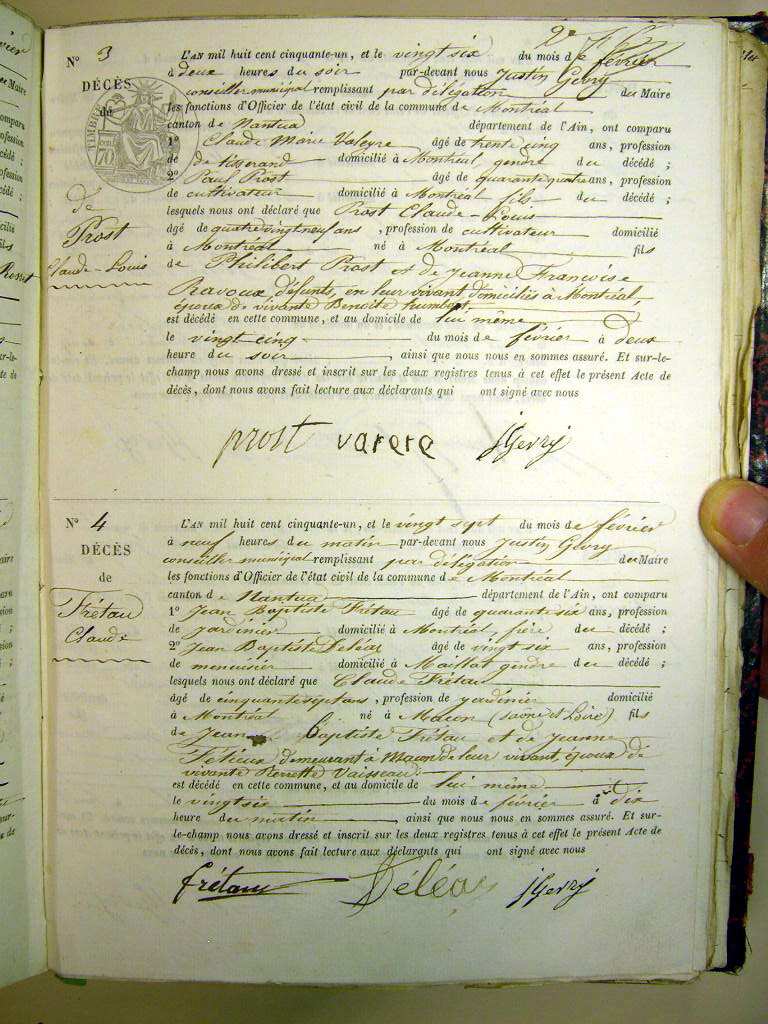 2e
N° 3
DÉCÈS
du
TIMBRE
70
de
Prost
Claude-Louis
L'AN mil huit cent cinquante-un, et le vingt six du mois de février
à deux heures du soir par-devant nous Justin Gevry
conseiller municipal remplissant par délégation du Maire
les fonctions d'Officier de l'état civil de la commune de Montréal
canton de Nantua département de l'Ain, ont comparu
1° Claude Marie Valeyre âgé de trente cinq ans, profession
de de tisserand domicilié à Montréal, gendre du décédé ;
2° Paul Prost âgé de quarante quatre ans, profession
de cultivateur domicilié à Montréal fils du décédé ;
lesquels nous ont déclaré que Prost Claude-Louis
âgé de quatre vingt neuf ans, profession de cultivateur domicilié
à Montréal né à Montréal fils
de Philibert Prost et de Jeanne Francoise
Ravoux, défunts, en leur vivant domiciliés à Montréal,
époux de vivante Benoite humbert
est décédé en cette commune, et au domicile de lui même
le vingt cinq du mois de février à deux
heure du soir, ainsi que nous nous en sommes assuré. Et sur-le-
champ nous avons dressé et inscrit sur les deux registres tenus à cet effet le présent Acte de
décès, dont nous avons fait lecture aux déclarants qui ont signé avec nous
prost varere JGevry
N° 4
DÉCÈS
de
Frétau
Claude
L'AN mil huit cent cinquante-un, et le vingt sept du mois de février
à neuf heures du matin par-devant nous Justin Gevry
conseiller municipal remplissant par délégation du Maire
les fonctions d'Officier de l'état civil de la commune de Montréal
canton de Nantua département de l'Ain, ont comparu
1° Jean Baptiste Frétau âgé de quarante six ans, profession
de jardinier domicilié à Montréal, frère du décédé ;
2° Jean Baptiste Deléas âgé de vingt six ans, profession
de menuisier domicilié à Maillat gendre du décédé ;
lesquels nous ont déclaré que Claude Frétau
âgé de cinquante sept ans, profession de jardinier domicilié
à Montréal né à Macon (saone et Loire) fils
de Jean Baptiste Frétau et de Jeanne
demeurant à Macon de leur vivant, époux de
vivante Pierrette Vaisseau
est décédé en cette commune, et au domicile de lui même
le vingt six du mois de février à dix
heure du matin, ainsi que nous nous en sommes assuré. Et sur-
le-champ nous avons dressé et inscrit sur les deux registres tenus à cet effet le présent Acte de
décès, dont nous avons fait lecture aux déclarants qui ont signé avec nous
frétau Déléas JGevry